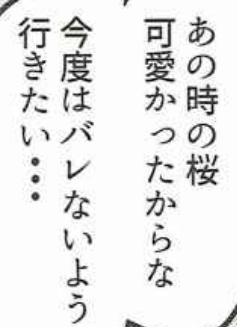 あの時の桜
可愛かったからな
今度はバレないよう
行きたい…